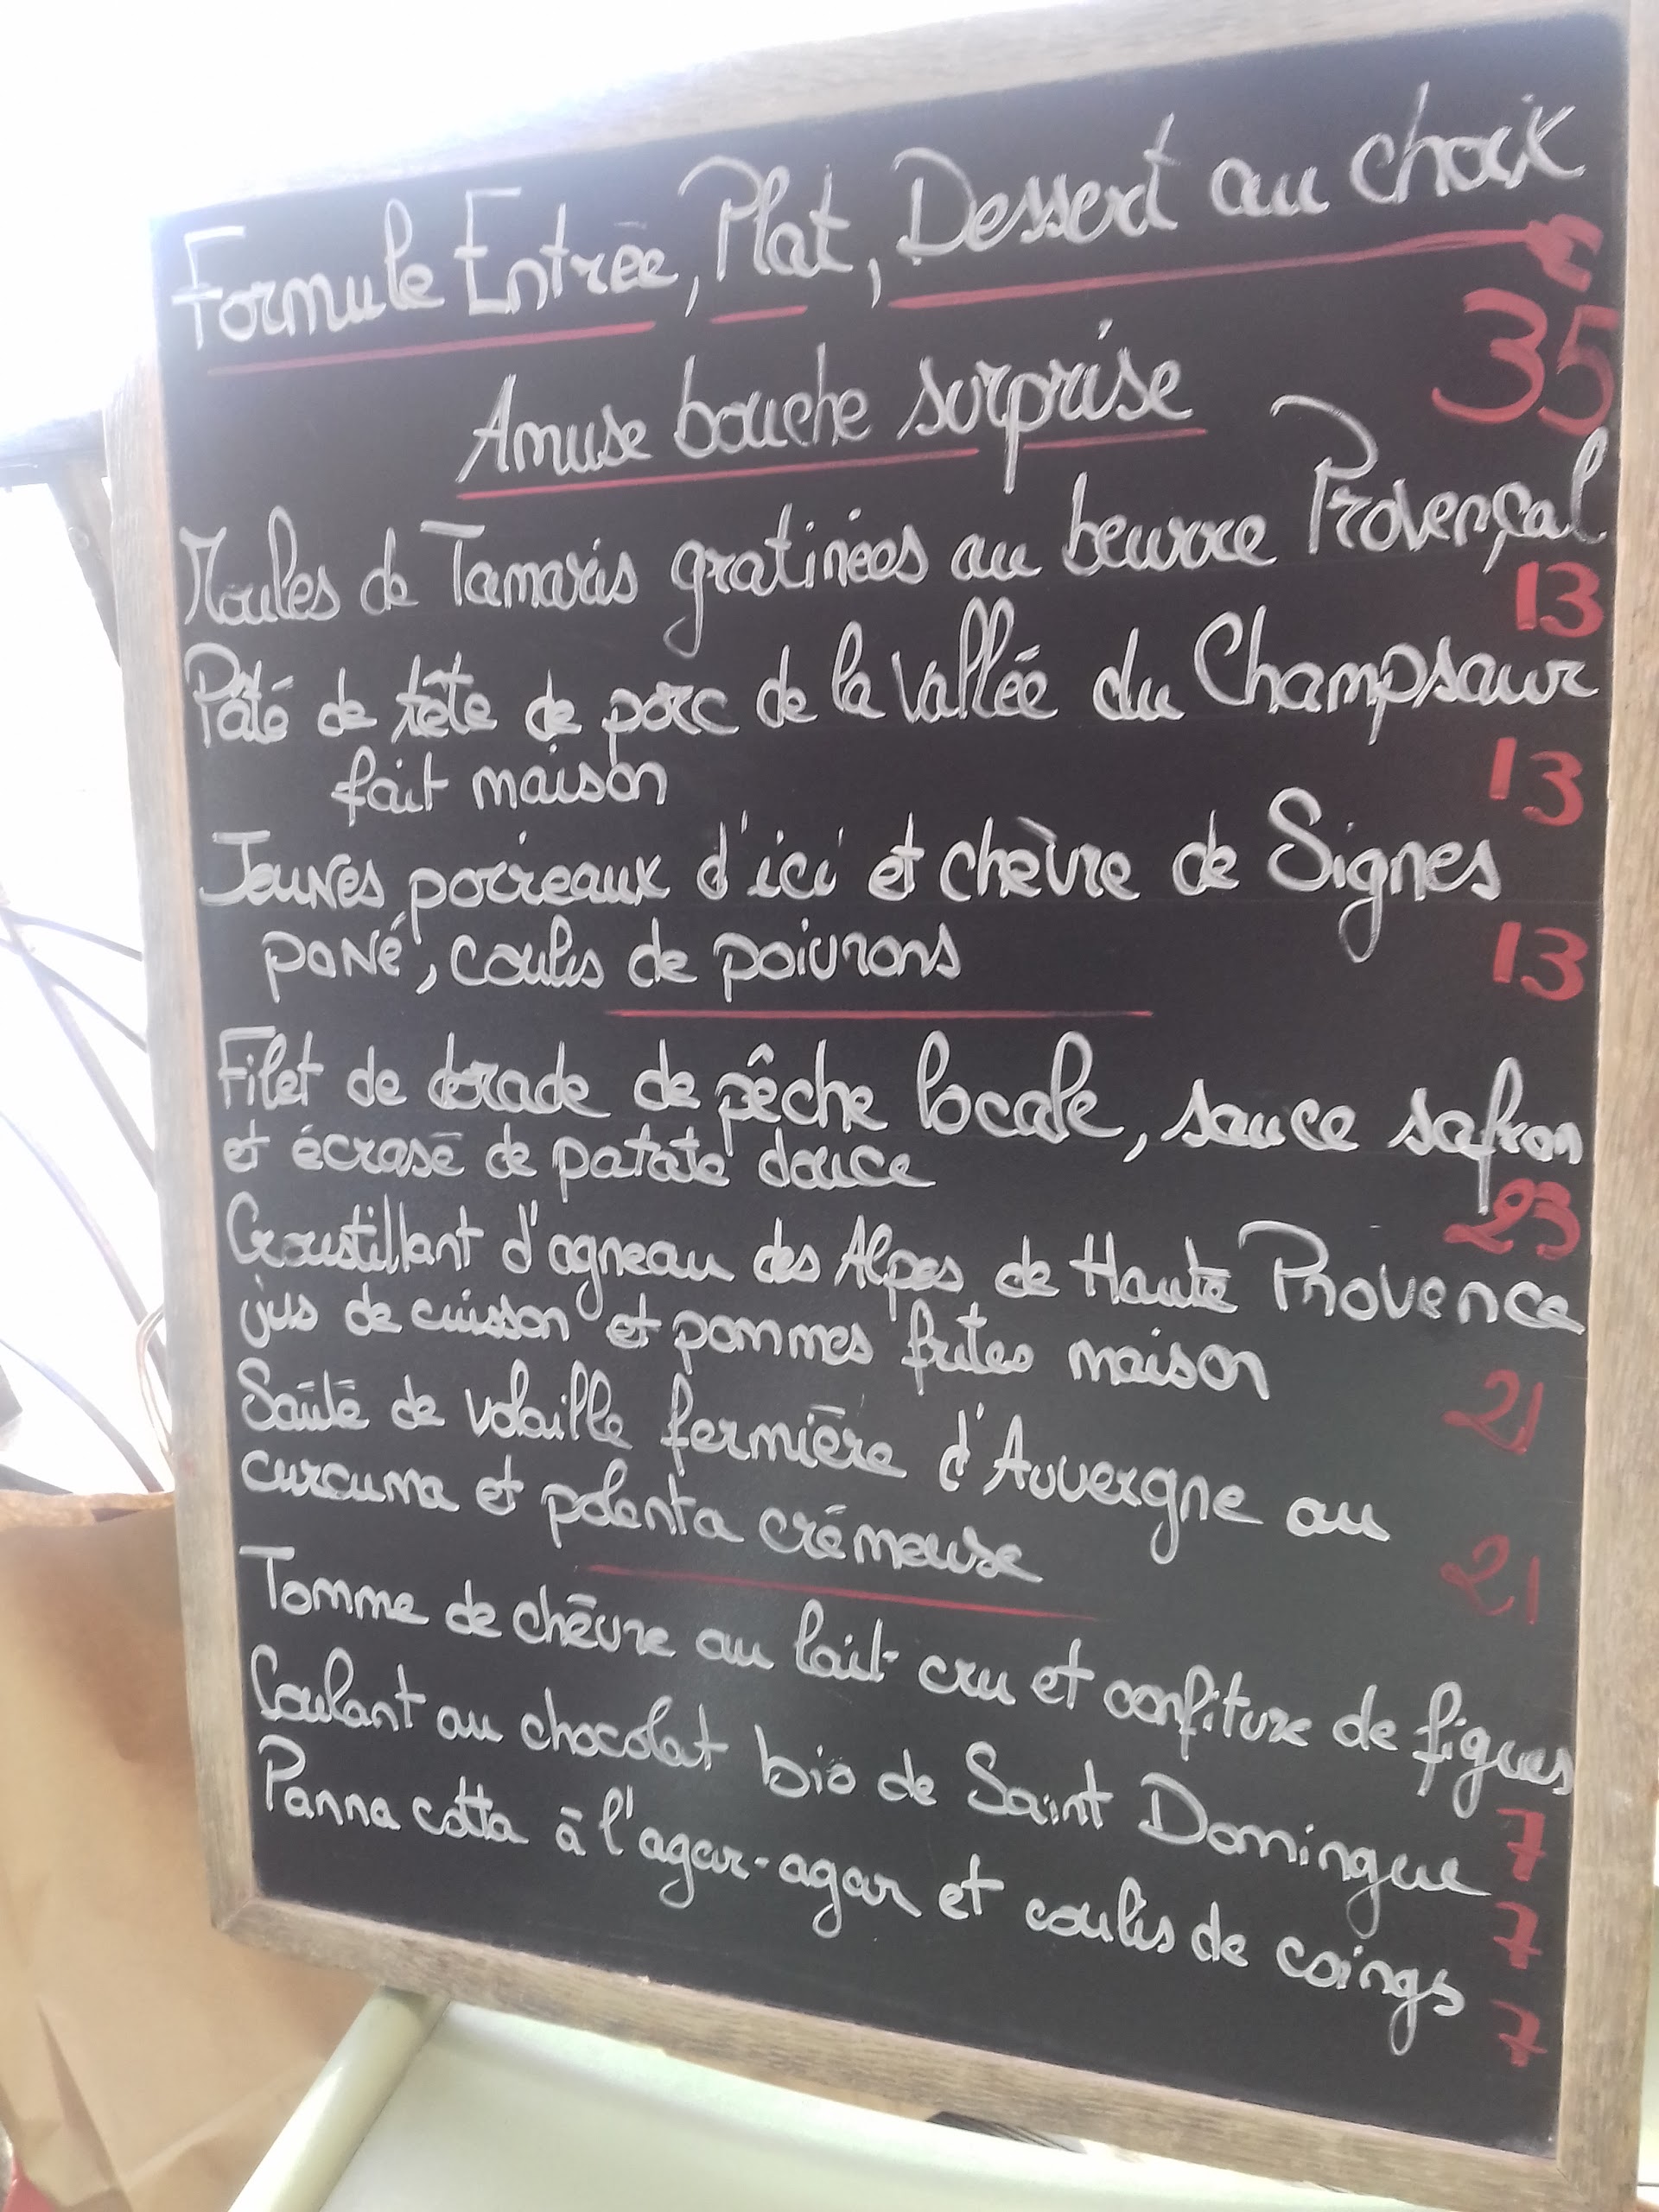 Formule Entrée, Plat, Dessert au choix
€
35
Amuse bouche surprise
Moules de Tamaris gratinées au beurre Provençal
13
Pâté de tête de porc de la Vallée du Champsaur
fait maison
13
Jeunes poireaux d'ici et chèvre de Signes
pané, coulis de poivrons
13
Filet de dorade de pêche locale, sauce safran
et écrasé de patate douce
23
Croustillant d'agneau des Alpes de Haute Provence
jus de cuisson et pommes frites maison
21
Sauté de volaille fermière d'Auvergne au
curcuma et polenta crémeuse
21
Tomme de chèvre au lait cru et confiture de figues
7
Coulant au chocolat bio de Saint Domingue
7
Panna cotta à l'agar-agar et coulis de coings
7